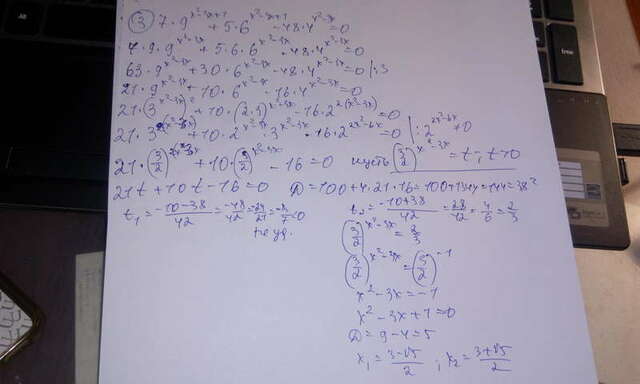 ③ 7·9^(x²-3x+1) + 5·6^(x²-3x+1) - 48·4^(x²-3x) = 0
7·9·9^(x²-3x) + 5·6·6^(x²-3x) - 48·4^(x²-3x) = 0
63·9^(x²-3x) + 30·6^(x²-3x) - 48·4^(x²-3x) = 0 | :3
21·9^(x²-3x) + 10·6^(x²-3x) - 16·4^(x²-3x) = 0
21·(3^(x²-3x))² + 10·(2·3)^(x²-3x) - 16·2^(2(x²-3x)) = 0
21·3^(2(x²-3x)) + 10·2^(x²-3x)·3^(x²-3x) - 16·2^(2x²-6x) = 0 | :2^(2x²-6x) ≠ 0
21·(3/2)^(2(x²-3x)) + 10·(3/2)^(x²-3x) - 16 = 0 пусть (3/2)^(x²-3x) = t, t>0
21t + 10t - 16 = 0 D = 100 + 4·21·16 = 100 + 1344 = 1444 = 38²
t₁ = (-10-38)/42 = -48/42 = -24/21 = -8/7 < 0 t₂ = (-10+38)/42 = 28/42 = 4/6 = 2/3
не уд.
(3/2)^(x²-3x) = 2/3
(3/2)^(x²-3x) = (3/2)^(-1)
x² - 3x = -1
x² - 3x + 1 = 0
D = 9 - 4 = 5
x₁ = (3-√5)/2 ; x₂ = (3+√5)/2